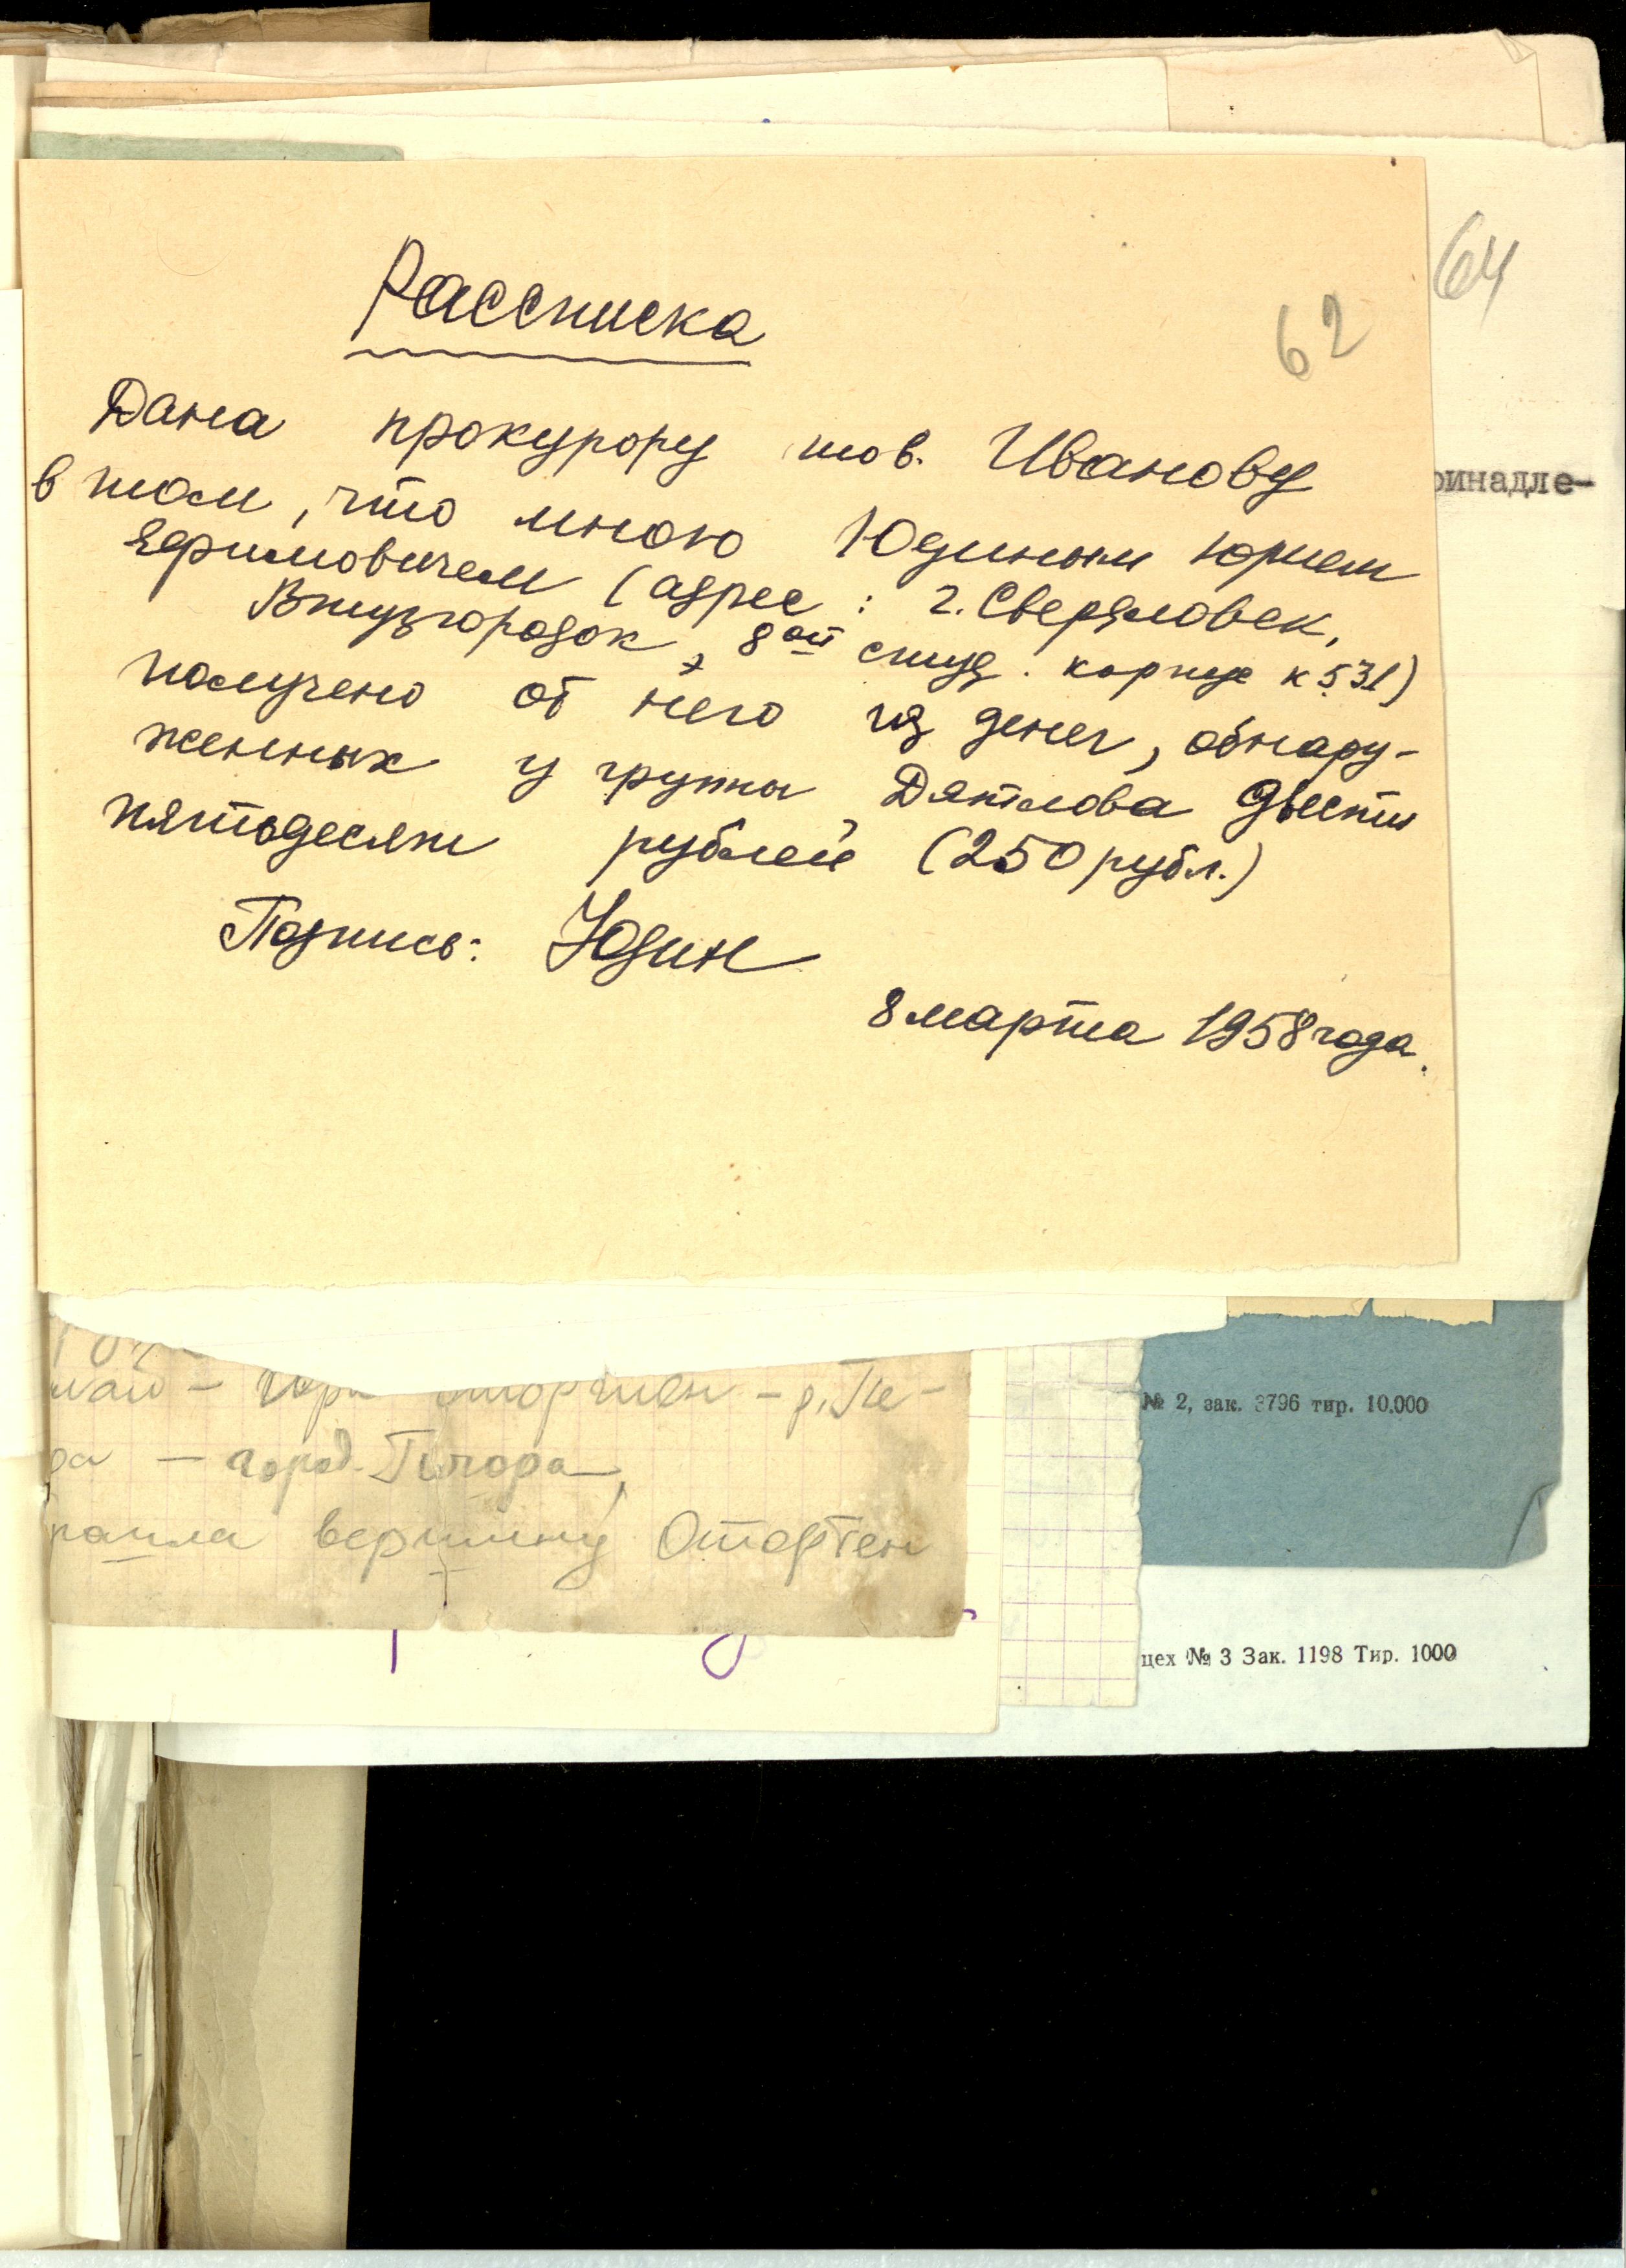 Рассписка
62
64
Дана прокурору тов. Иванову
в том, что мною Юдиным Юрием
Ефимовичем (адрес: г. Свердловск,
Втузгородок, 8ой студ. корпус к 531)
получено от него из денег, обнару-
женных у группы Дятлова двести
пятьдесят рублей (250 рубл.)
Подпись: Юдин
8 марта 1958 года.
ринадле-
Отортен – р. Пе-
– город Печора
вершину Отортен
№ 2, зак. 3796 тир. 10.000
цех № 3 Зак. 1198 Тир. 1000